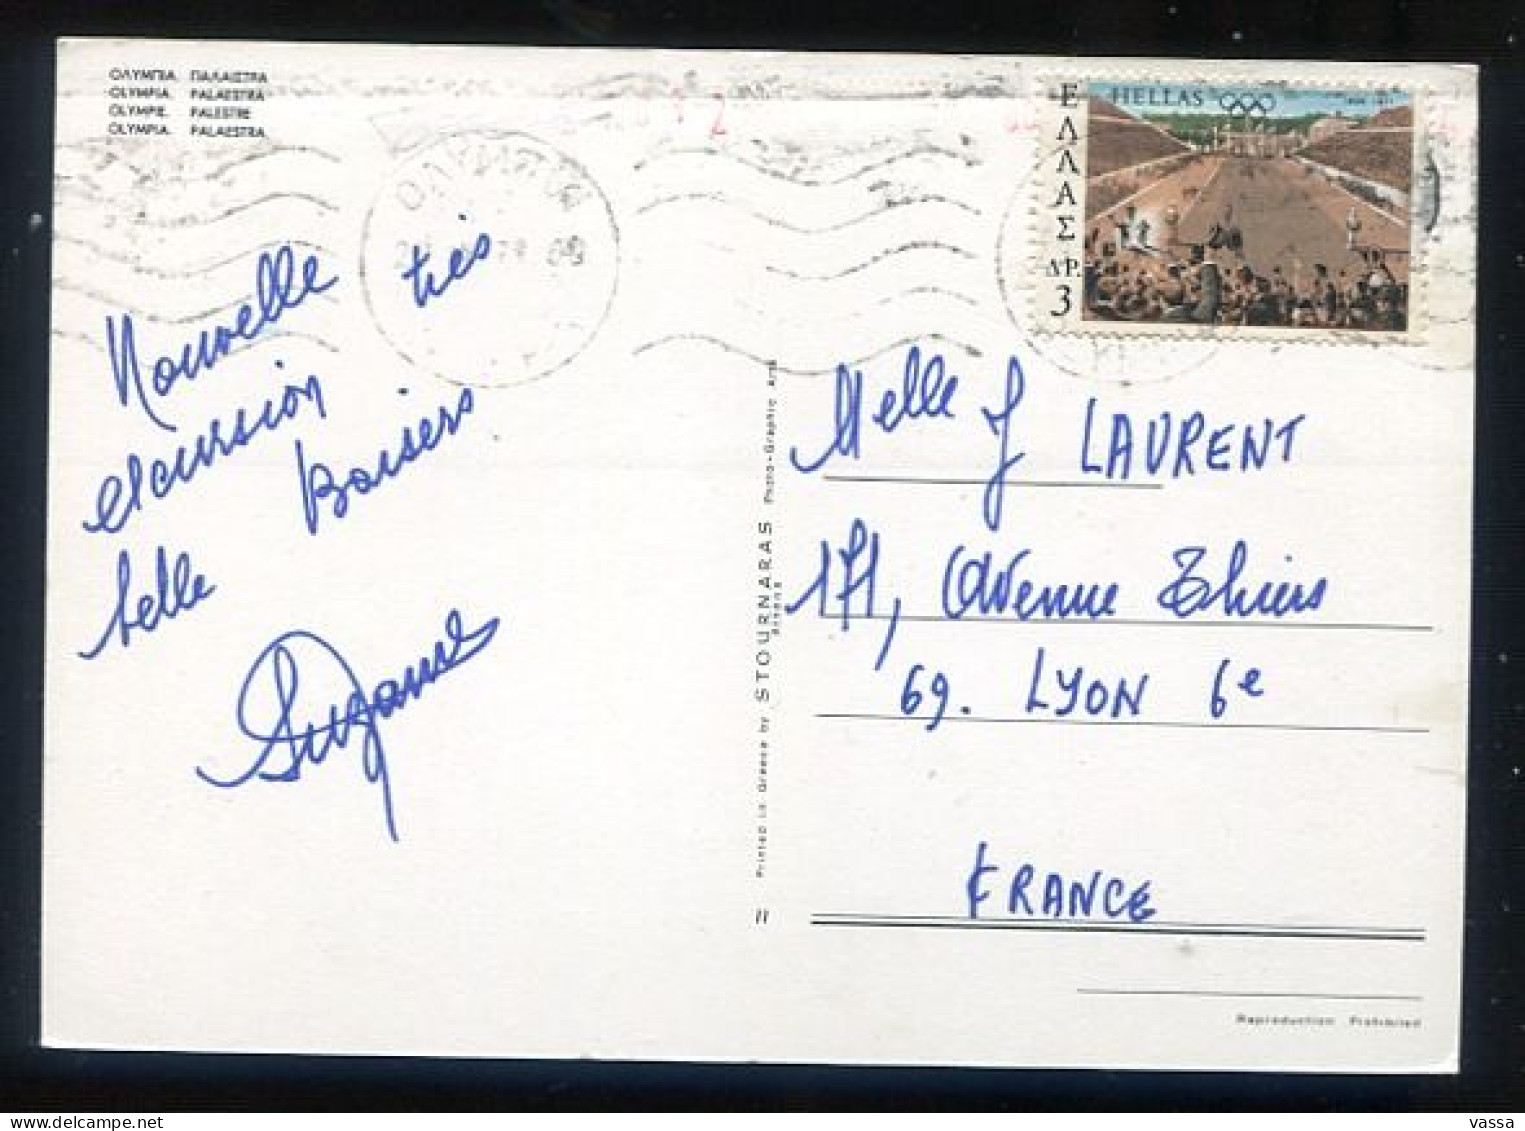 ΟΛΥΜΠΙΑ. ΠΑΛΑΙΣΤΡΑ
OLYMPIA. PALAESTRA
OLYMPIE. PALESTRE
OLYMPIA. PALAESTRA
ΕΛΛΑΣ
HELLAS
ΔΡ.
3
Nouvelle très
excursion
belle Baisers
Suzanne
Melle J LAURENT
171, Avenue Thiers
69. LYON 6e
FRANCE
Printed in Greece by STOURNARAS Photo-Graphic Arts
11
Reproduction Prohibited
vassa